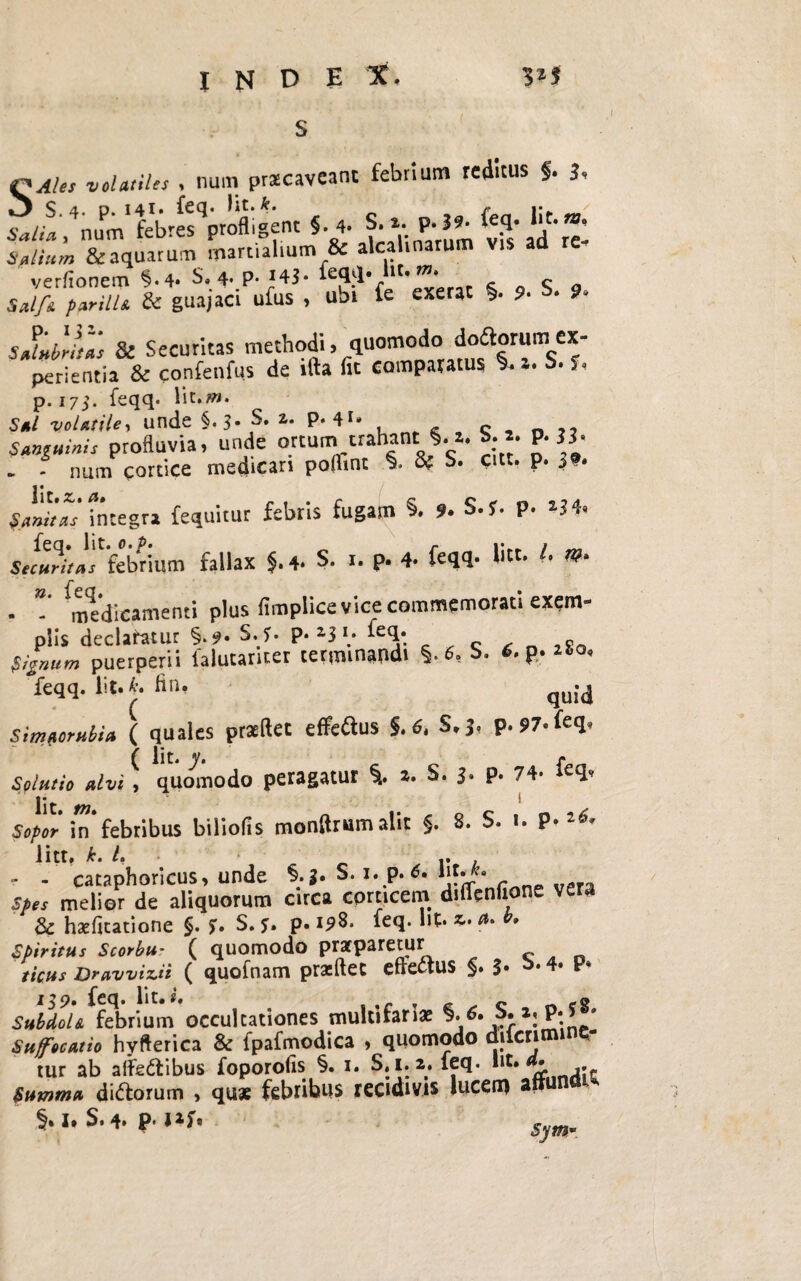 INDEX. 325
S
SAles volatiles, num præcaveant febrium reditus §. 3,
S. 4. p. 141. seq. lit. k.
Salia, num febres profligent §. 4. S. 2. p. 39. seq. lit. m.
Salium & aquarum martialium & alcalinarum vis ad re-
versionem §. 4. S. 4. p. 143. seqq. lit. m.
Salsæ parillæ & guajaci usus, ubi se exerat §. 9. S. 9.
p. 132.
Salubritas & Securitas methodi, quomodo doctorum ex-
perientia & consensus de ista sit comparatus §. 2. S. 5,
p. 173. seqq. lit. m.
Sal volatile, unde §. 3. S. 2. p. 41.
Sanguinis profluvia, unde ortum trahant §. 2. S. 2. p. 33.
- - num cortice medicari possint §. & S. citt. p. 39.
lit. z. a.
Sanitas integra sequitur febris fugam §. 9. S. 5. p. 234,
seq. lit. o. p.
Securitas febrium fallax §. 4. S. 1. p. 4. seqq. litt. l. m.
n. seq.
- - medicamenti plus simplice vice commemorati exem-
plis declaratur §. 9. S. 5. p. 231. seq.
Signum puerperii salutariter terminandi §. 6, S. 6. p. 280,
seqq. lit. k. fin.
( quid
Simaorubia ( quales præstet effectus §. 6, S. 3, p. 97. seq,
( lit. y.
Solutio alvi, quomodo peragatur §. 2. S. 3. p. 74. seq,
lit. m.
Sopor in febribus biliosis monstrum alit §. 8. S. 1. p. 26,
litt, k. l,
- - cataphoricus, unde §. 3. S. 1. p. 6. lit. k.
Spes melior de aliquorum circa corticem dissensione vera
& hæsitatione §. 5. S. 5. p. 198. seq. lit. z. a. b,
Spiritus Scorbu- ( quomodo præparetur
ticus Dravvizii ( quosnam præstet effectus §. 3. S. 4. p.
139. seq. lit. i.
Subdolæ febrium occultationes multifariæ §. 6. S. 2, p. 58.
Suffocatio hysterica & spasmodica, quomodo discrimine-
tur ab affectibus soporosis §. 1. S. 1. 2. seq. lit. d.
Summa dictorum, quæ febribus recidivis lucem affundit
§. 1. S. 4. p. 125.
Sym-